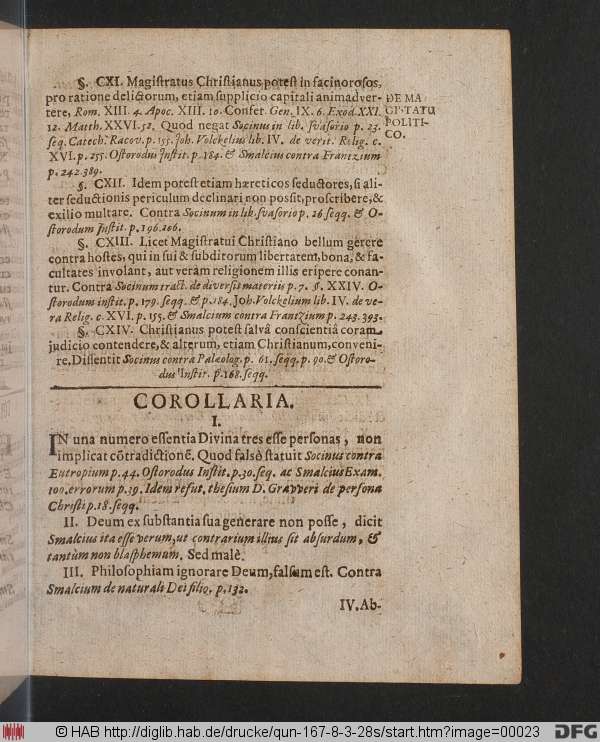 §. CXI. Magiſtratus Chriſtianus poteſt in facinoroſos,
pro ratione delictorum, etiam ſupplicio capitali animadver-
tere, Rom. XIII. 4. Apoc. XIII. 10. Confer. Gen. IX. 6. Exod. XXI.
12. Matth. XXVI. 52. Quod negat Socinus in lib. ſvaſorio p. 23.
ſeq. Catech. Racov. p. 155. Joh. Volckelius lib. IV. de verit. Relig. c.
XVI. p. 255. Oſtorodus Inſtit. p. 184. & Smalcius contra Frantzium
p. 242. 389.
DE MA
GISTATU
POLITI-
CO.
§. CXII. Idem poteſt etiam hæreticos ſeductores, ſi ali-
ter ſeductionis periculum declinari non poſſit, proſcribere, &
exilio multare. Contra Socinum in lib. ſvaſorio p. 26 ſeqq. & O-
ſtorodum Inſtit. p. 196. 206.
§. CXIII. Licet Magiſtratui Chriſtiano bellum gerere
contra hoſtes, qui in ſui & ſubditorum libertatem, bona, & fa-
cultates involant, aut veram religionem illis eripere conan-
tur. Contra Socinum tract. de diverſis materiis p. 7. §. XXIV. O-
ſtorodum inſtit. p. 179. ſeqq. & p. 184. Joh. Volckelium lib. IV. de ve-
ra Relig. c. XVI. p. 155. & Smalcium contra Frantzium p. 243. 393.
§. CXIV. Chriſtianus poteſt ſalvâ conſcientiâ coram
judicio contendere, & alterum, etiam Chriſtianum, conveni-
re. Diſſentit Socinus contra Palæolog. p. 61. ſeqq. p. 90. & Oſtoro-
dus Inſtit. p. 168. ſeqq.
COROLLARIA.
I.
IN una numero eſſentia Divina tres eſſe perſonas, non
implicat cõtradictionẽ. Quod falsò ſtatuit Socinus contra
Eutropium p. 44. Oſtorodus Inſtit. p. 30. ſeq. ac Smalcius Exam.
100. errorum p. 19. Idem refut. theſium D. Gravveri de perſona
Chriſti p. 18. ſeqq.
II. Deum ex ſubſtantia ſua generare non poſſe, dicit
Smalcius ita eſſe verum, ut contrarium illius ſit abſurdum, &
tantùm non blaſphemum. Sed malè.
III. Philoſophiam ignorare Deum, falſum eſt. Contra
Smalcium de naturali Dei filio, p. 132.
IV. Ab-
© HAB http://diglib.hab.de/drucke/qun-167-8-3-28s/start.htm?image=00023
DFG